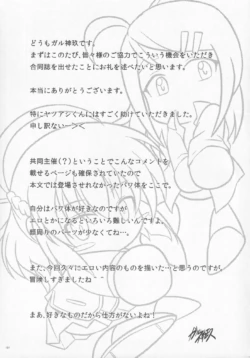 どうもガル神玖です。
まずはこのたび、様々な方のご協力でこういう機会をいただき
合同誌を出せたことにお礼を述べたいと思います。
本当にありがとうございます。
特にヤツアシくんにはすごく助けていただきました。
申し訳ない…っ
共同主催(?)ということでこんなコメントを
載せるページも確保されていたので
本文では登場させれなかったパワ体をここで。
自分はパワ体が好きなのですが
エロとかになるといろいろ難しいんですよ。
顔周りのパーツが少なくてね…。
また、今回久々にエロい内容のものを描いた…と思うのですが、
冒険しすぎましたね~
まあ、好きなものだから仕方がないよね!